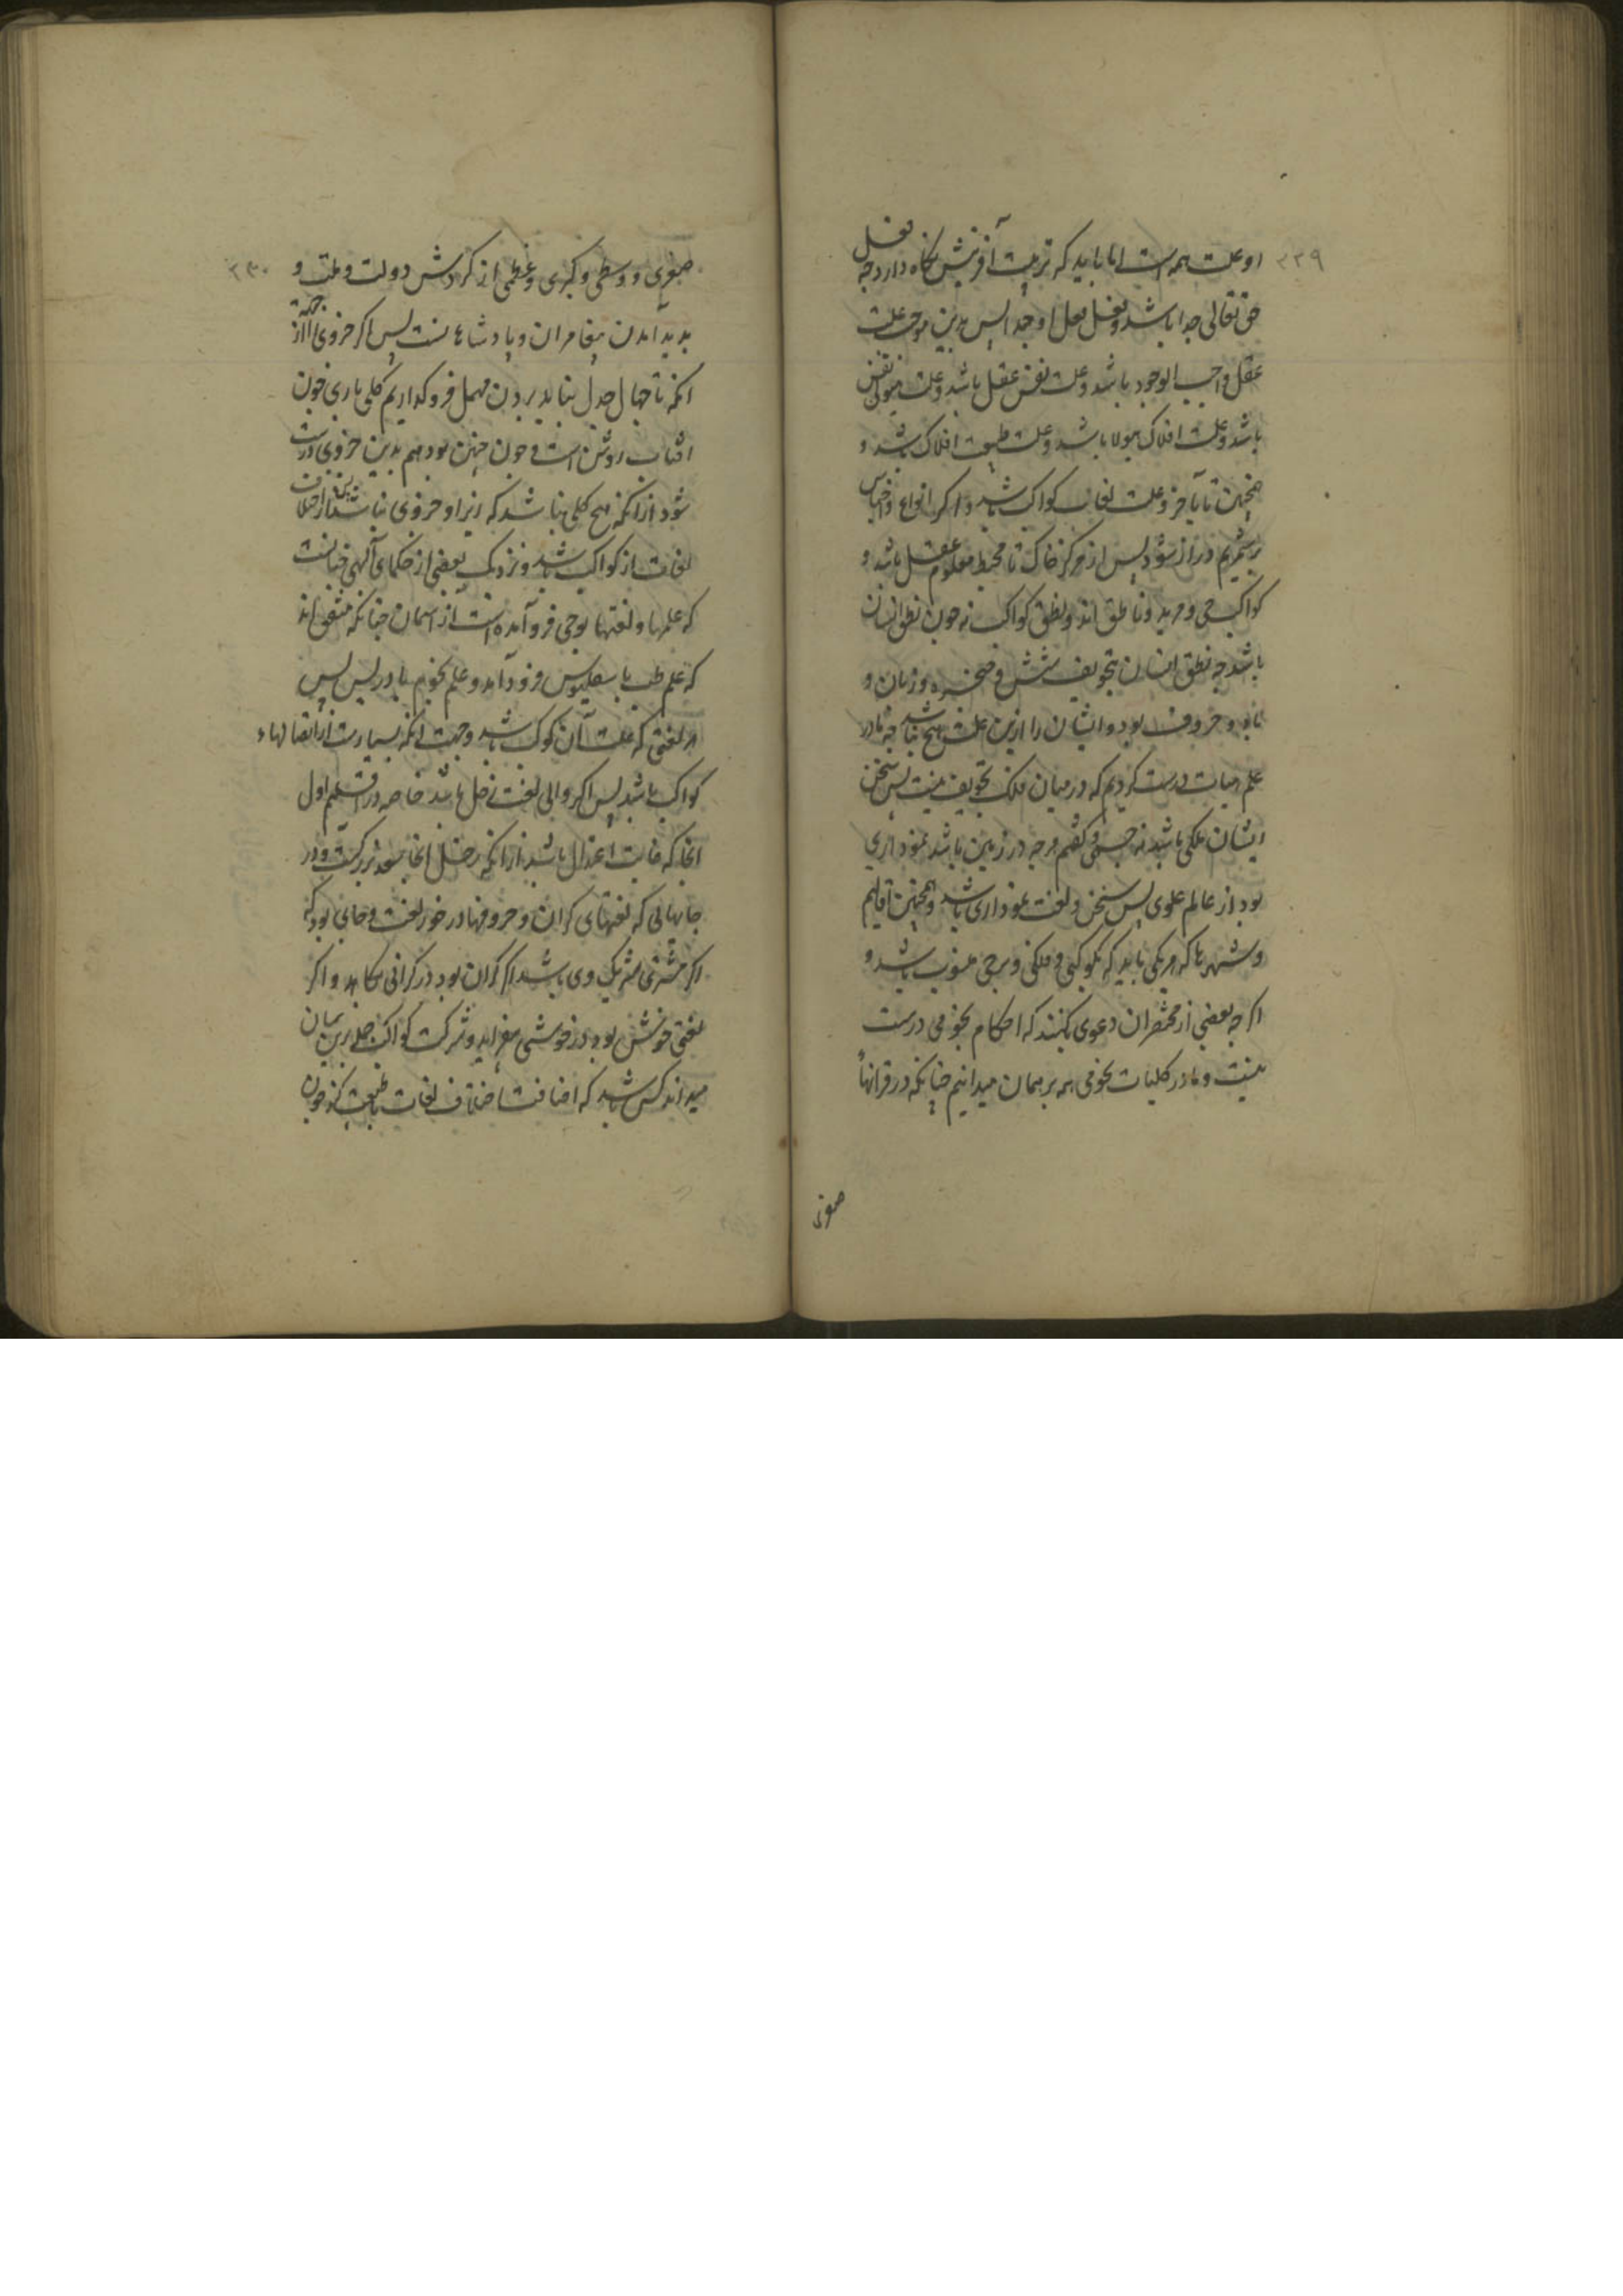 ۲۲۹
او علت همه است اما باید که ترتیب آفرینش نگاه دارد چه فعل
حق تعالی جدا باشد و فعل فعل او جدا پس بدین موجب علت
عقل واجب الوجود باشد و علت نفس عقل باشد و علت هیولی نفس
باشد و علت افلاک هیولا باشد و علت طبیعت افلاک باشد و
همچنین تا بآخر و علت لغات کواکب باشد و اکر انواع و اجناس
برشمریم دراز شود پس از مرکز خاک تا محیط معلوم عقل باشد و
کواکب حی و مرید و ناطق اند و نطق کواکب نه چون نطق انسان
باشد چه نطق انسان بتجویف شش و حنجره و زبان و
و حروف بود و ایشان را ازین علت هیچ نباشد چه ما در
علم هیات درست کردیم که در میان فلک تجویف نیست پس سخن
ایشان ملکی باشد نه جسمی و کفتیم هرچه در زمین باشد نموداری
بود از عالم علوی پس سخن و لغت نموداری باشد و همچنین اقالیم
و شهرها که هریکی باید که بکوکبی و فلکی و برجی منسوب باشد و
اکرچه بعضی از مختصران دعوی کنند که احکام نجومی درست
نیست و ما در کلیات نجومی همه برهمان میدانیم چنانکه در قرانهاء
صغری
۲۳۰
صغری و وسطی و کبری و عظمی از کردش دولت و ملت و
بدید آمدن پیغامبران و پادشاهانست پس اکر جزوی را از جهة
آنکه تا جهال جدل نباید بردن مهمل فروکذاریم کلی باری چون
افتاب روشن است و چون چنین بود هم بدین جزوی درست
شود از آنکه هیچ کلی نباشد که زیر او جزوی نباشد پس اختلاف
لغات از کواکب باشد و نزدیک بعضی از حکمای آلهی چنانست
که علمها و لغتها بوحی فرو آمده است از اسمان چنانکه متفق اند
که علم طب باسقلبیوس فرود آمد و علم نجوم بادریس پس
هر لغتی که علت آن کوکب باشد وجهت آنکه بسیارست از اتصالهاء
کواکب باشد پس اکر والی لغت زحل باشد خاصه در اقلیم اول
انجا که غایت اعتدال باشد از آنکه زحل انجا سعد بزرکست و در
جایهائی که لغتهای کران و حروفها در خور لغت و جای بود که
اکر مشتری شریک وی باشد اکر کران بود در کرانی بکاهد و اکر
لغتی خوش بود در خوشی بیفزاید و شرکت کواکب جمله برین سان
میداند کس باشد که اضافت اختلاف لغات با طبیعت کند چون